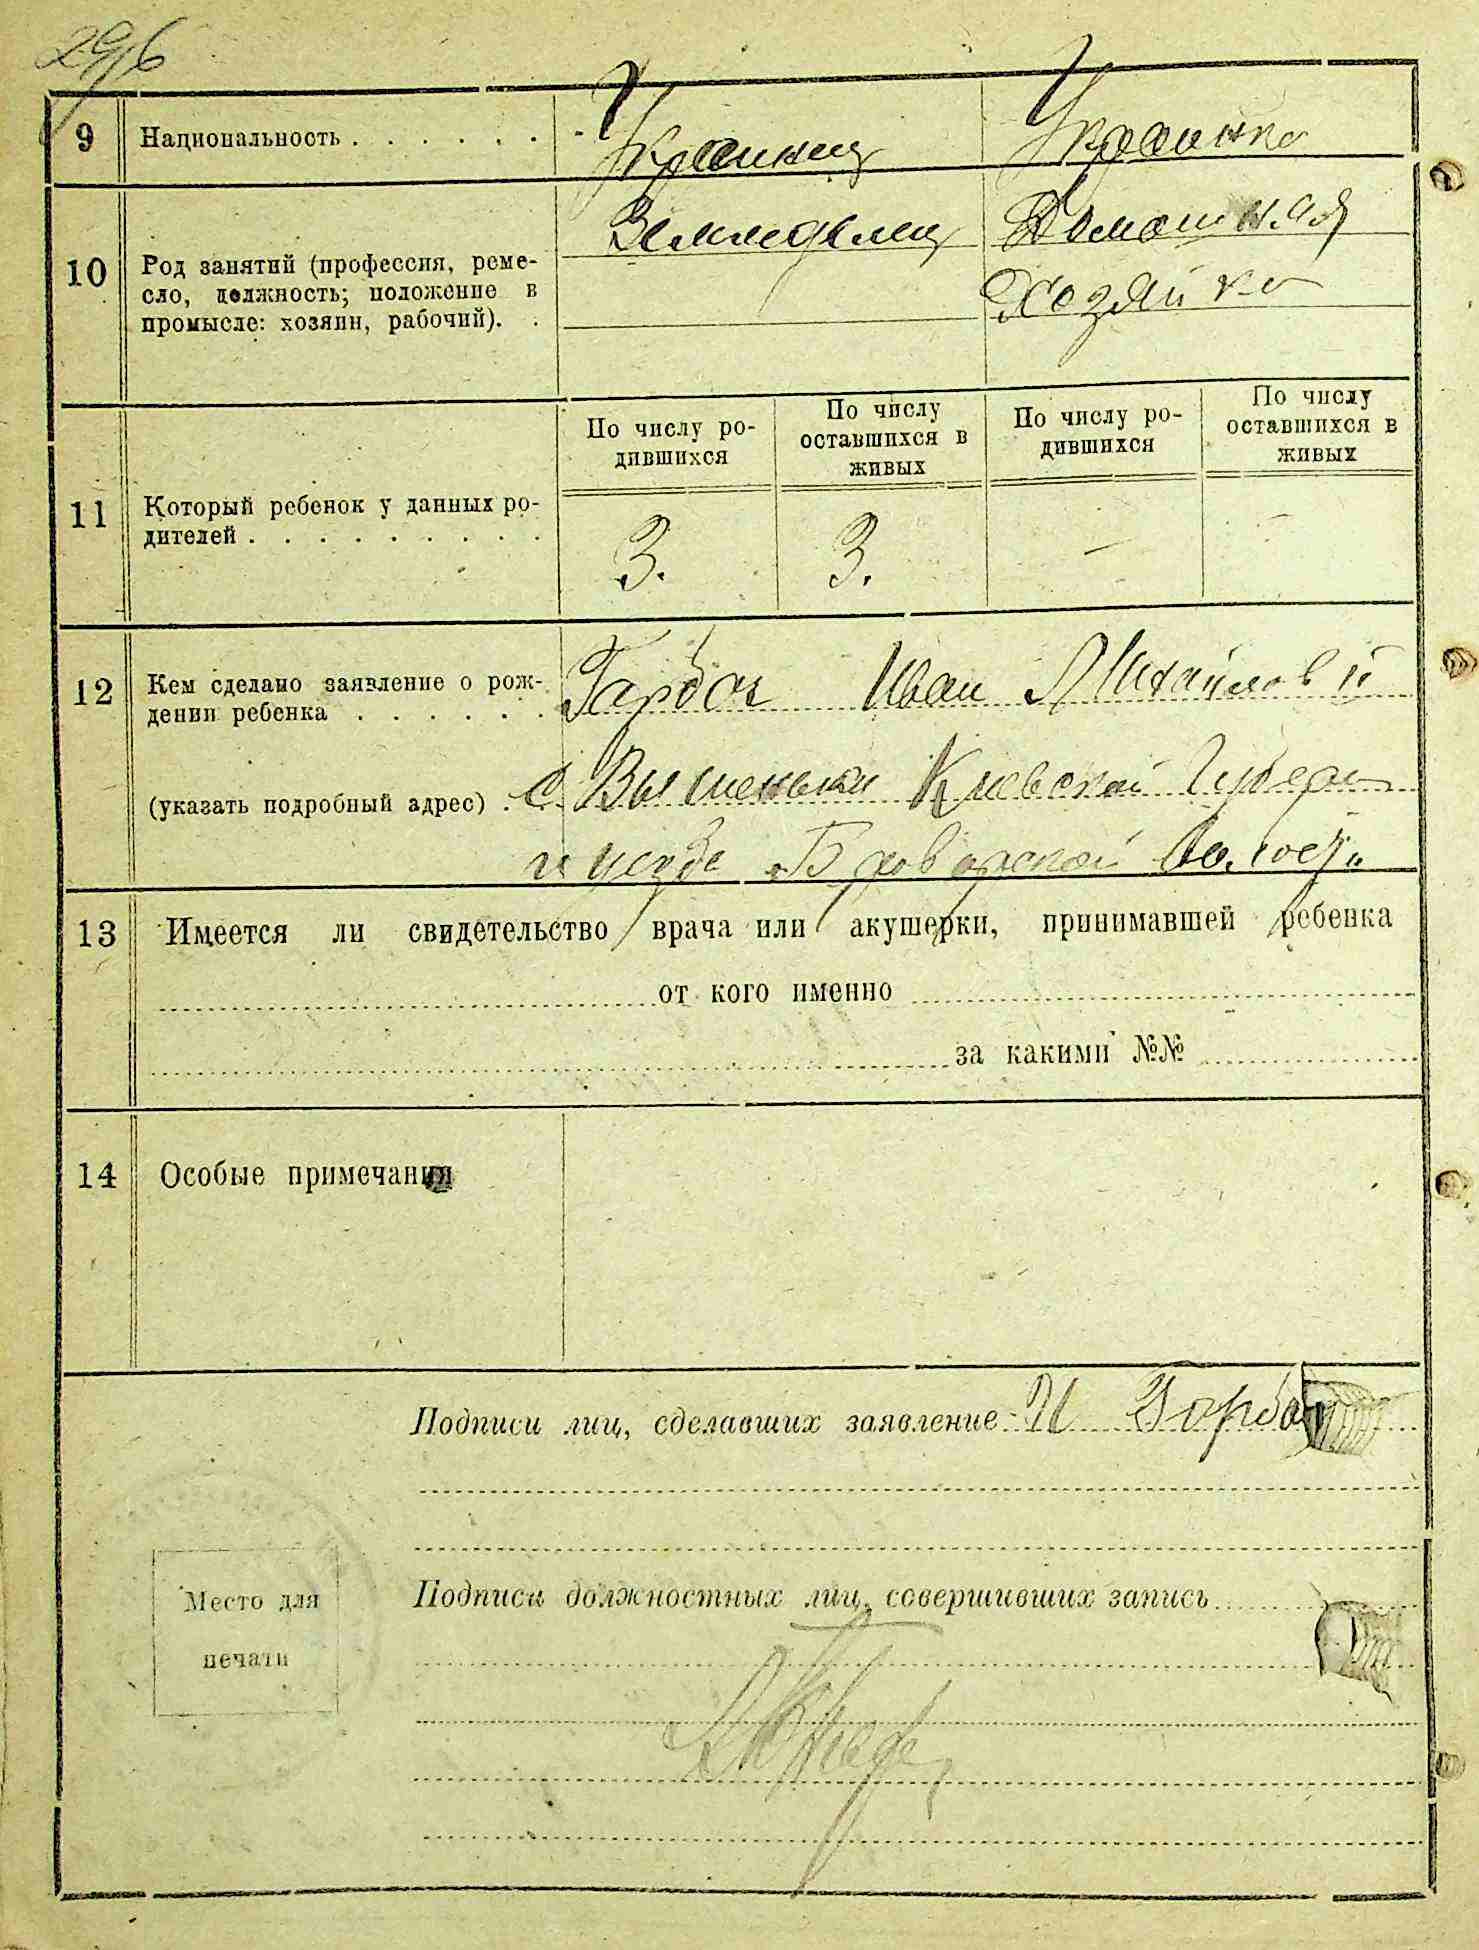 296
9 Национальность . . . . . . . Украинец Украинка
10 Род занятий (профессия, реме-
сло, должность; положение в
промысле: хозяин, рабочий). .
Земледелец Домашная
Хозяйка
По числу ро-
дившихся
По числу
оставшихся в
живых
По числу ро-
дившихся
По числу
оставшихся в
живых
11 Который ребенок у данных ро-
дителей . . . . . . . . .
3. 3. — —
12 Кем сделано заявление о рож-
дении ребенка . . . . . . .
Гарбач Иван Михайлов
(указать подробный адрес) . С. Вышеньки Киевской Губерн
Броварской
13 Имеется ли свидетельство врача или акушерки, принимавшей ребенка
от кого именно
за какими №№
14 Особые примечания
Подписи лиц, сделавших заявление И Горбач
Место для
печати
Подписи должностных лиц, совершивших запись